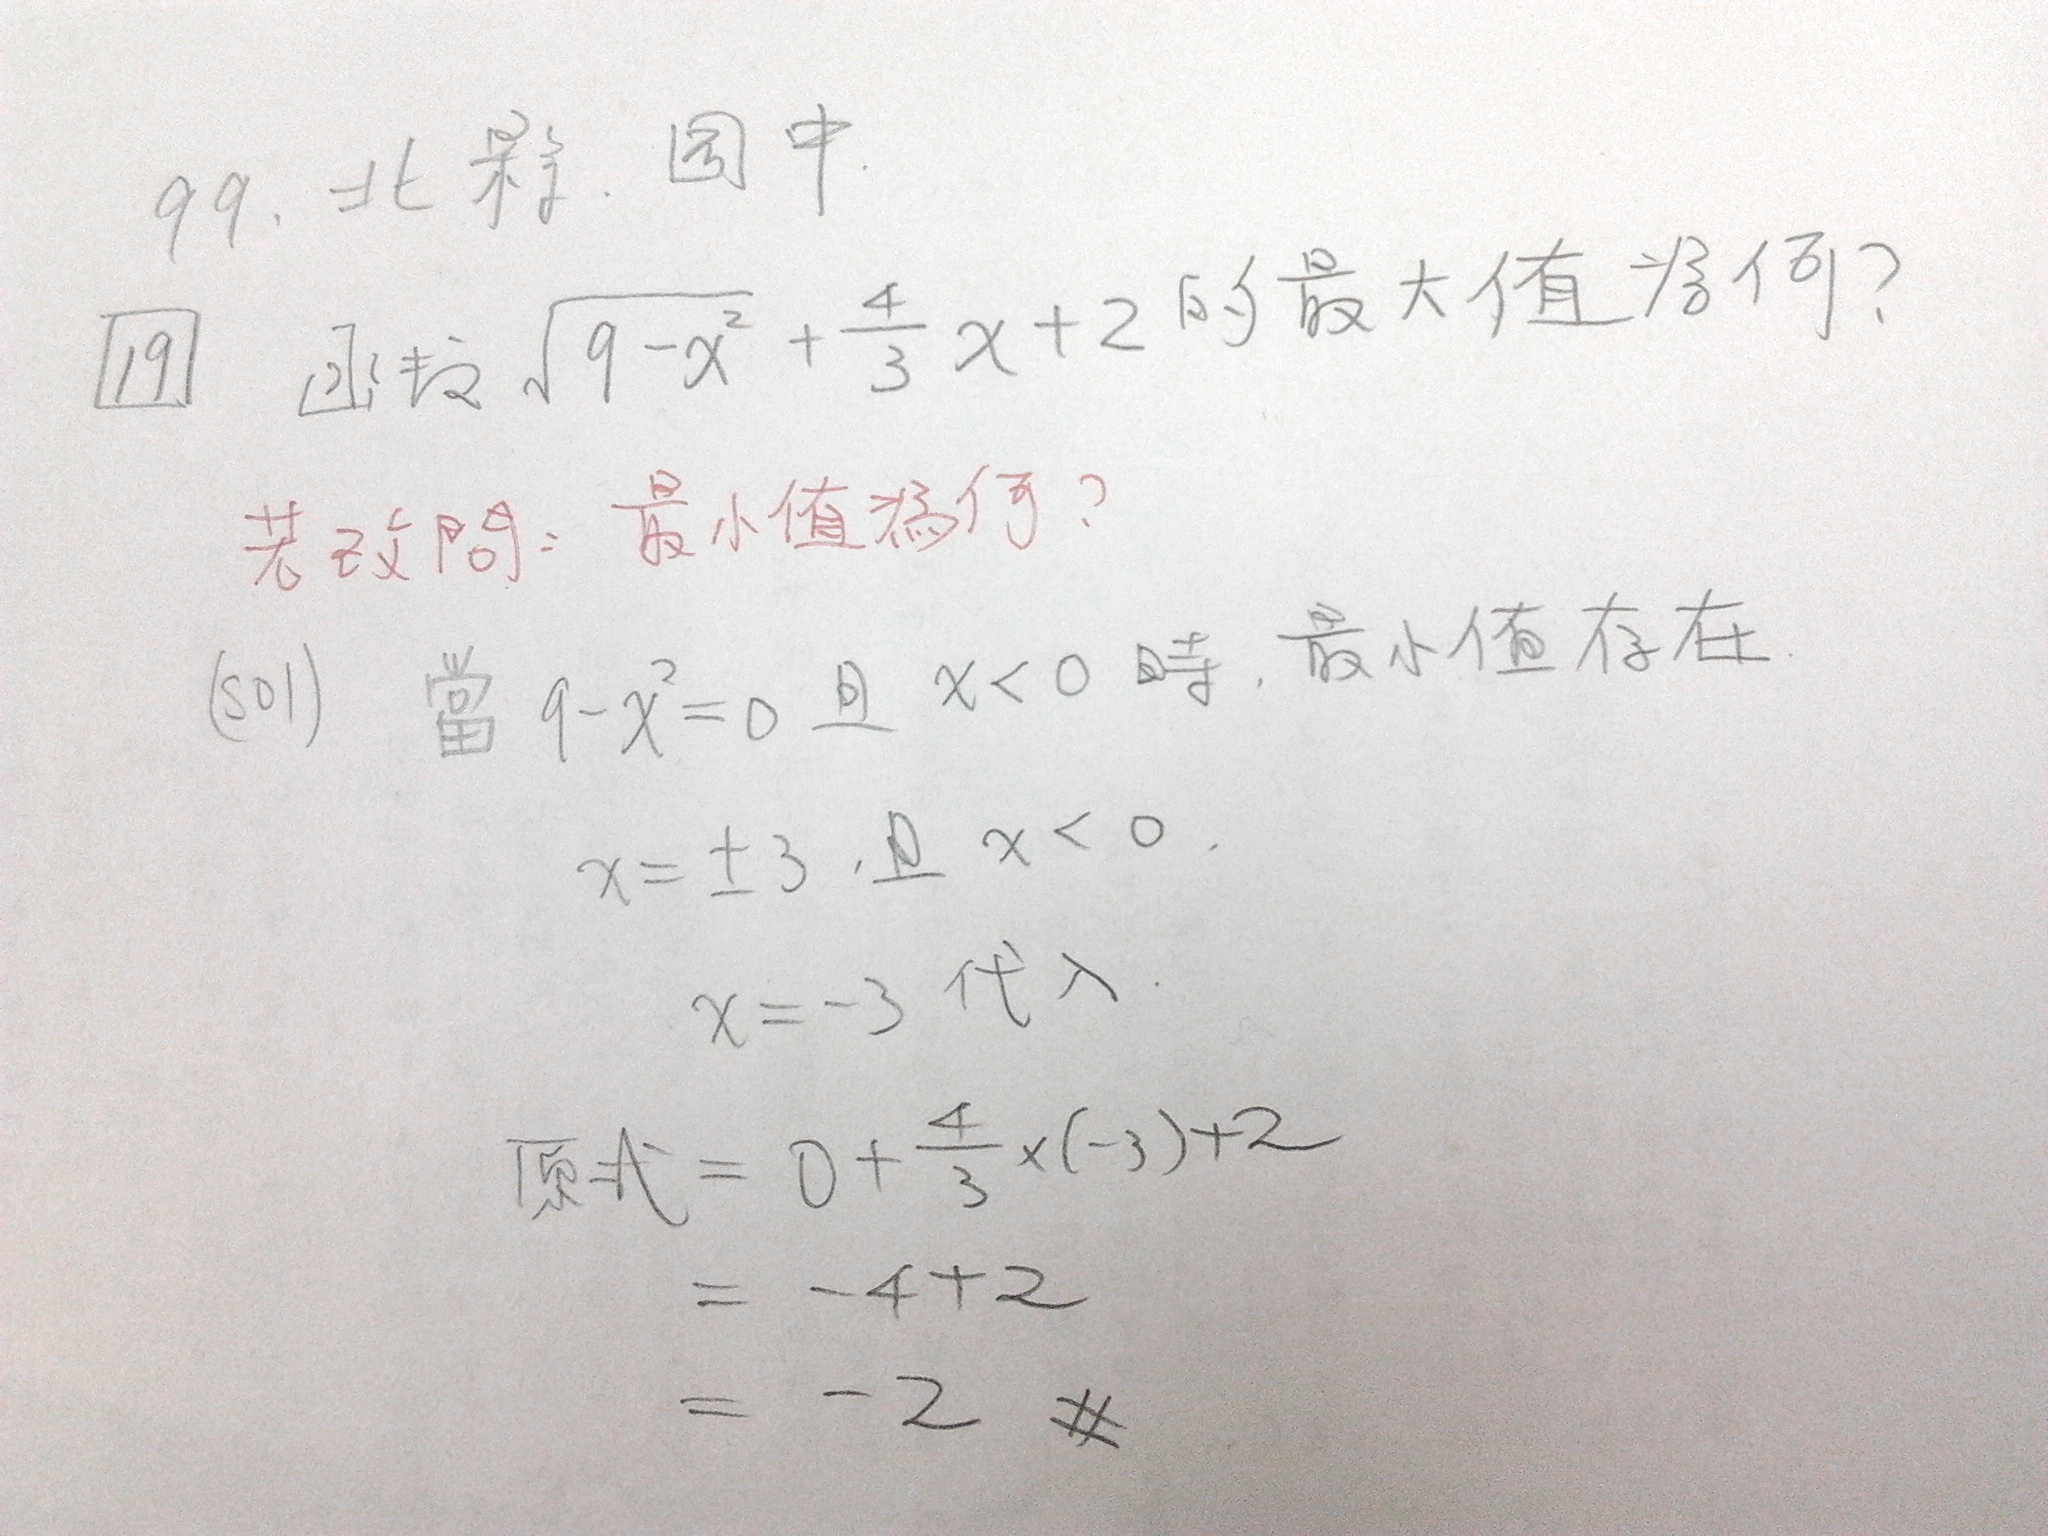 99. 北縣. 國中.
19 函數 √(9-x²) + 4/3 x + 2 的最大值為何?
若改問: 最小值為何?
(sol) 當 9-x²=0 且 x<0 時, 最小值存在.
x=±3, 且 x<0.
x=-3 代入.
原式 = 0 + 4/3 ×(-3)+2
= -4+2
= -2 #